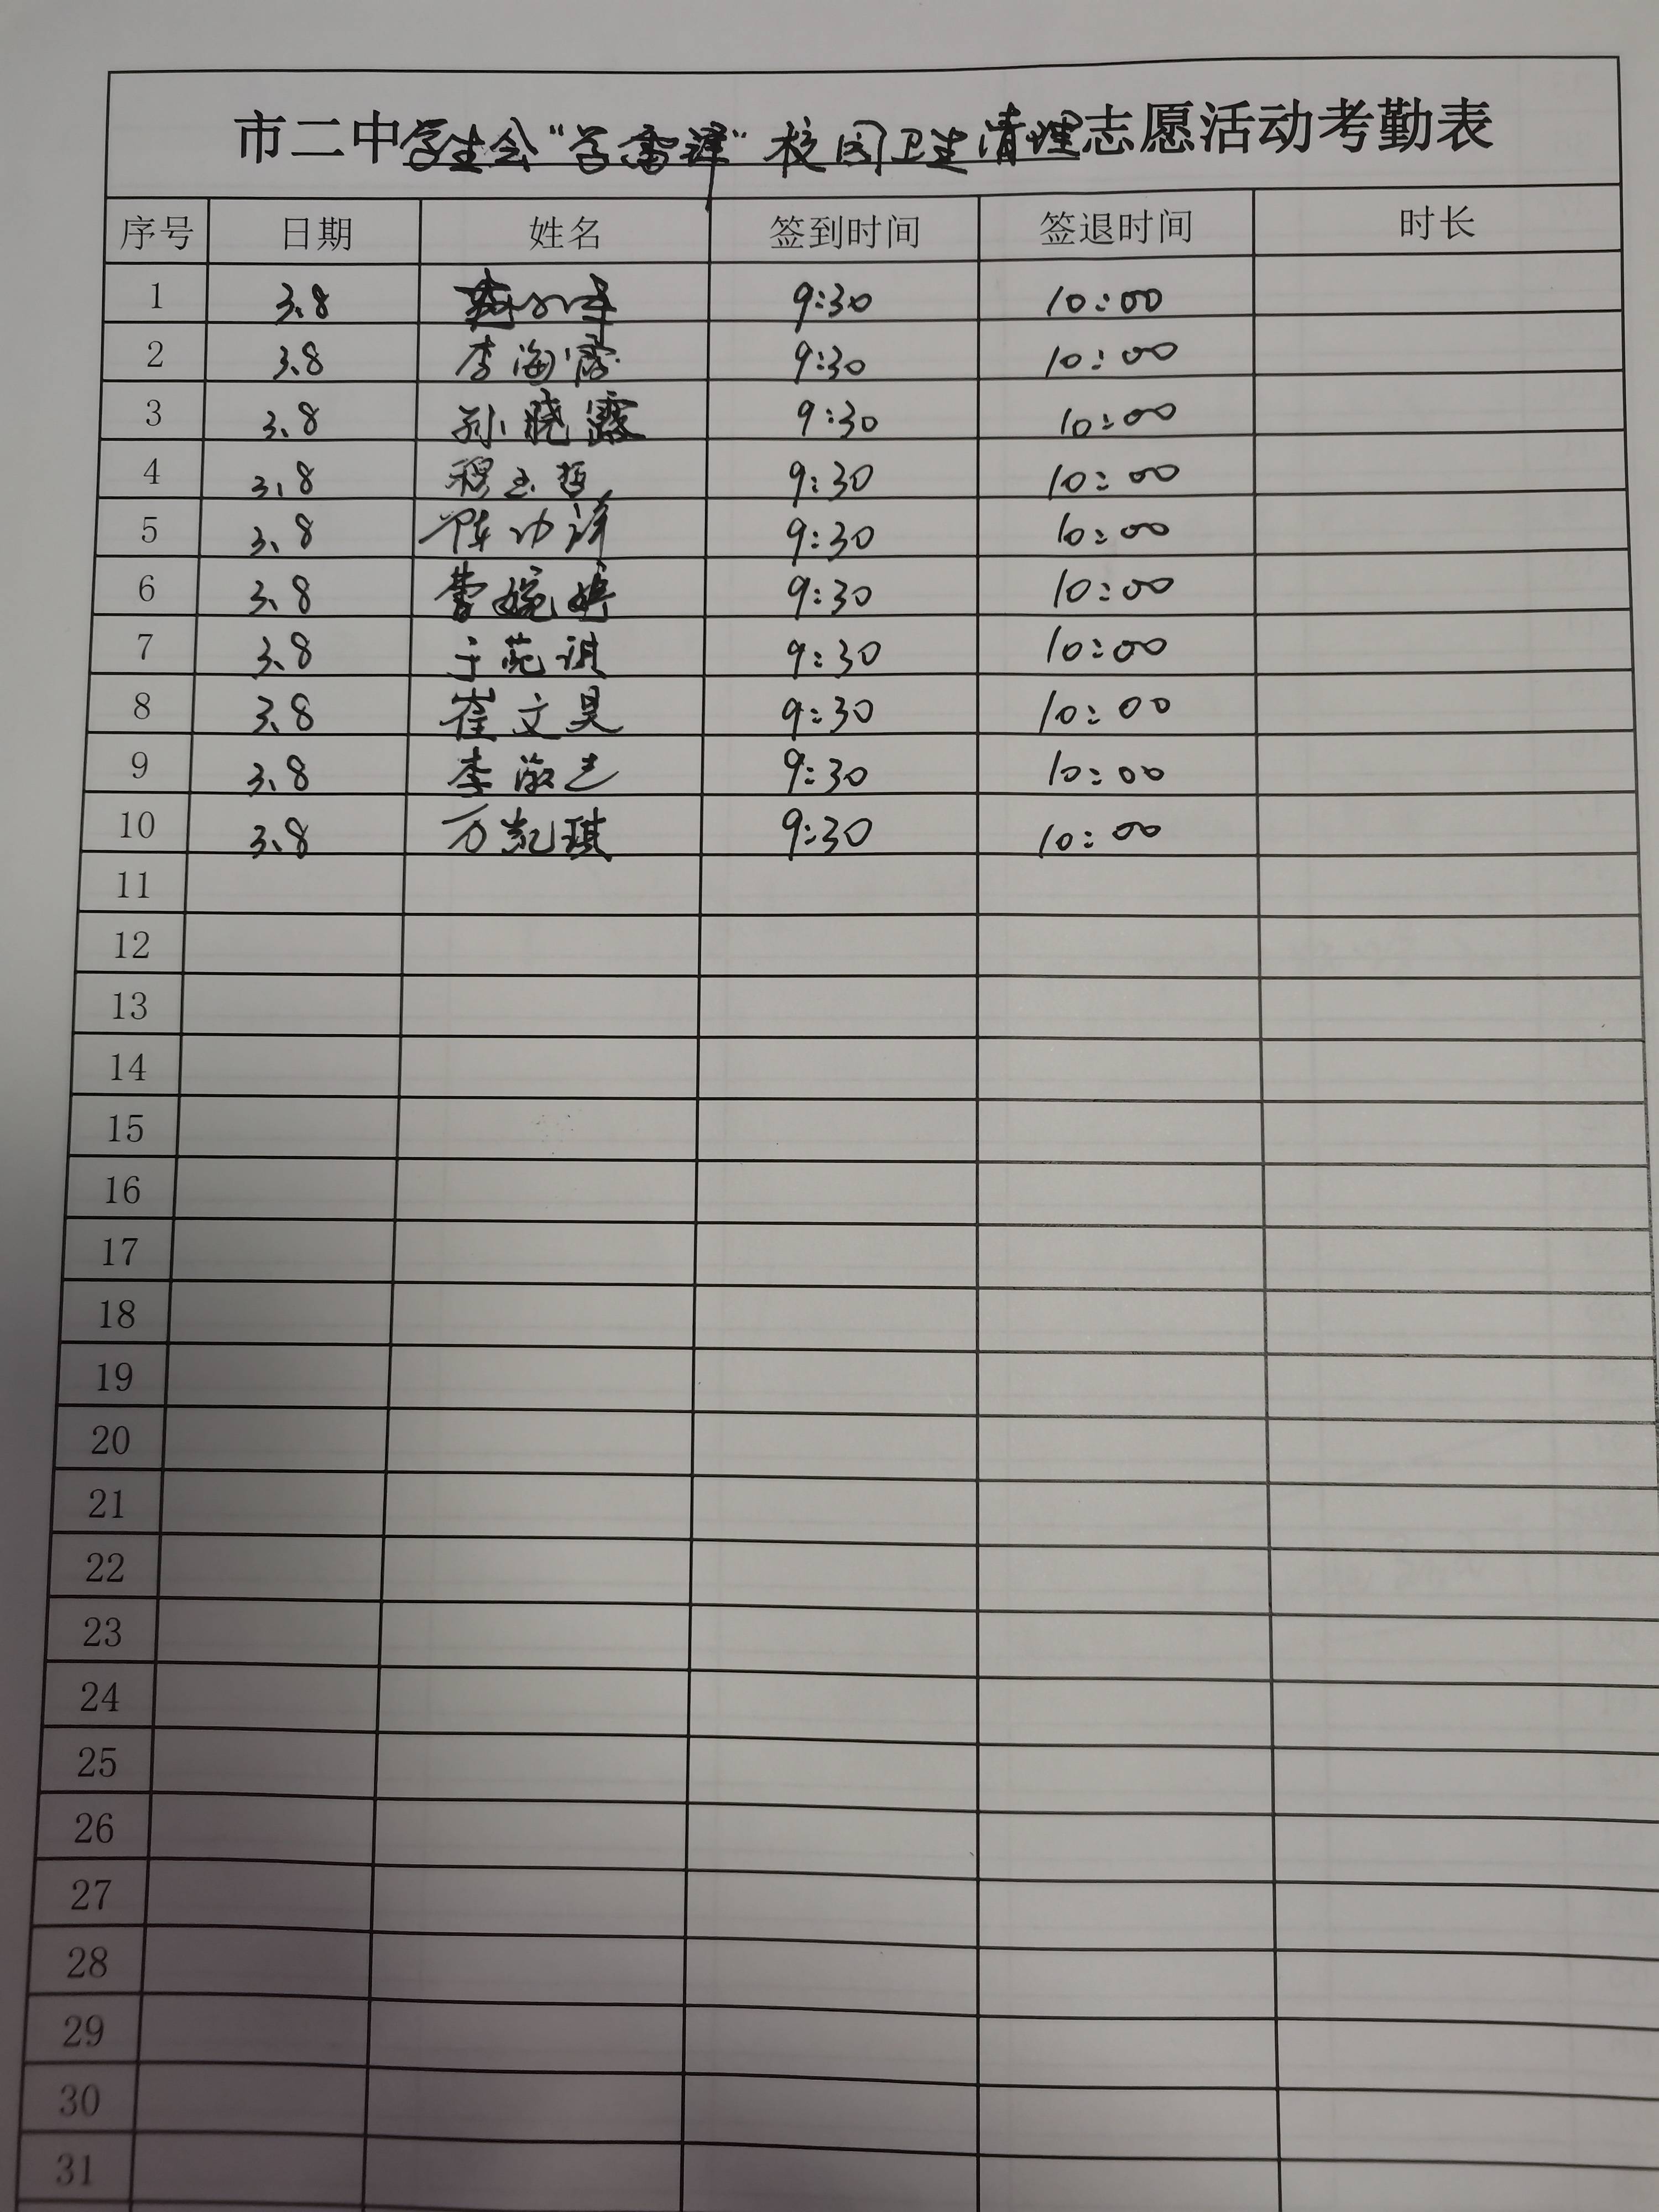 市二中学生会“学雷锋”校园卫生清理志愿活动考勤表
序号 日期 姓名 签到时间 签退时间 时长
1 3.8 9:30 10:00
2 3.8 李海霞 9:30 10:00
3 3.8 孙晓露 9:30 10:00
4 3.8 穆玉哲 9:30 10:00
5 3.8 9:30 10:00
6 3.8 曹婉婷 9:30 10:00
7 3.8 于苑淇 9:30 10:00
8 3.8 崔文昊 9:30 10:00
9 3.8 9:30 10:00
10 3.8 万凯琪 9:30 10:00
11
12
13
14
15
16
17
18
19
20
21
22
23
24
25
26
27
28
29
30
31